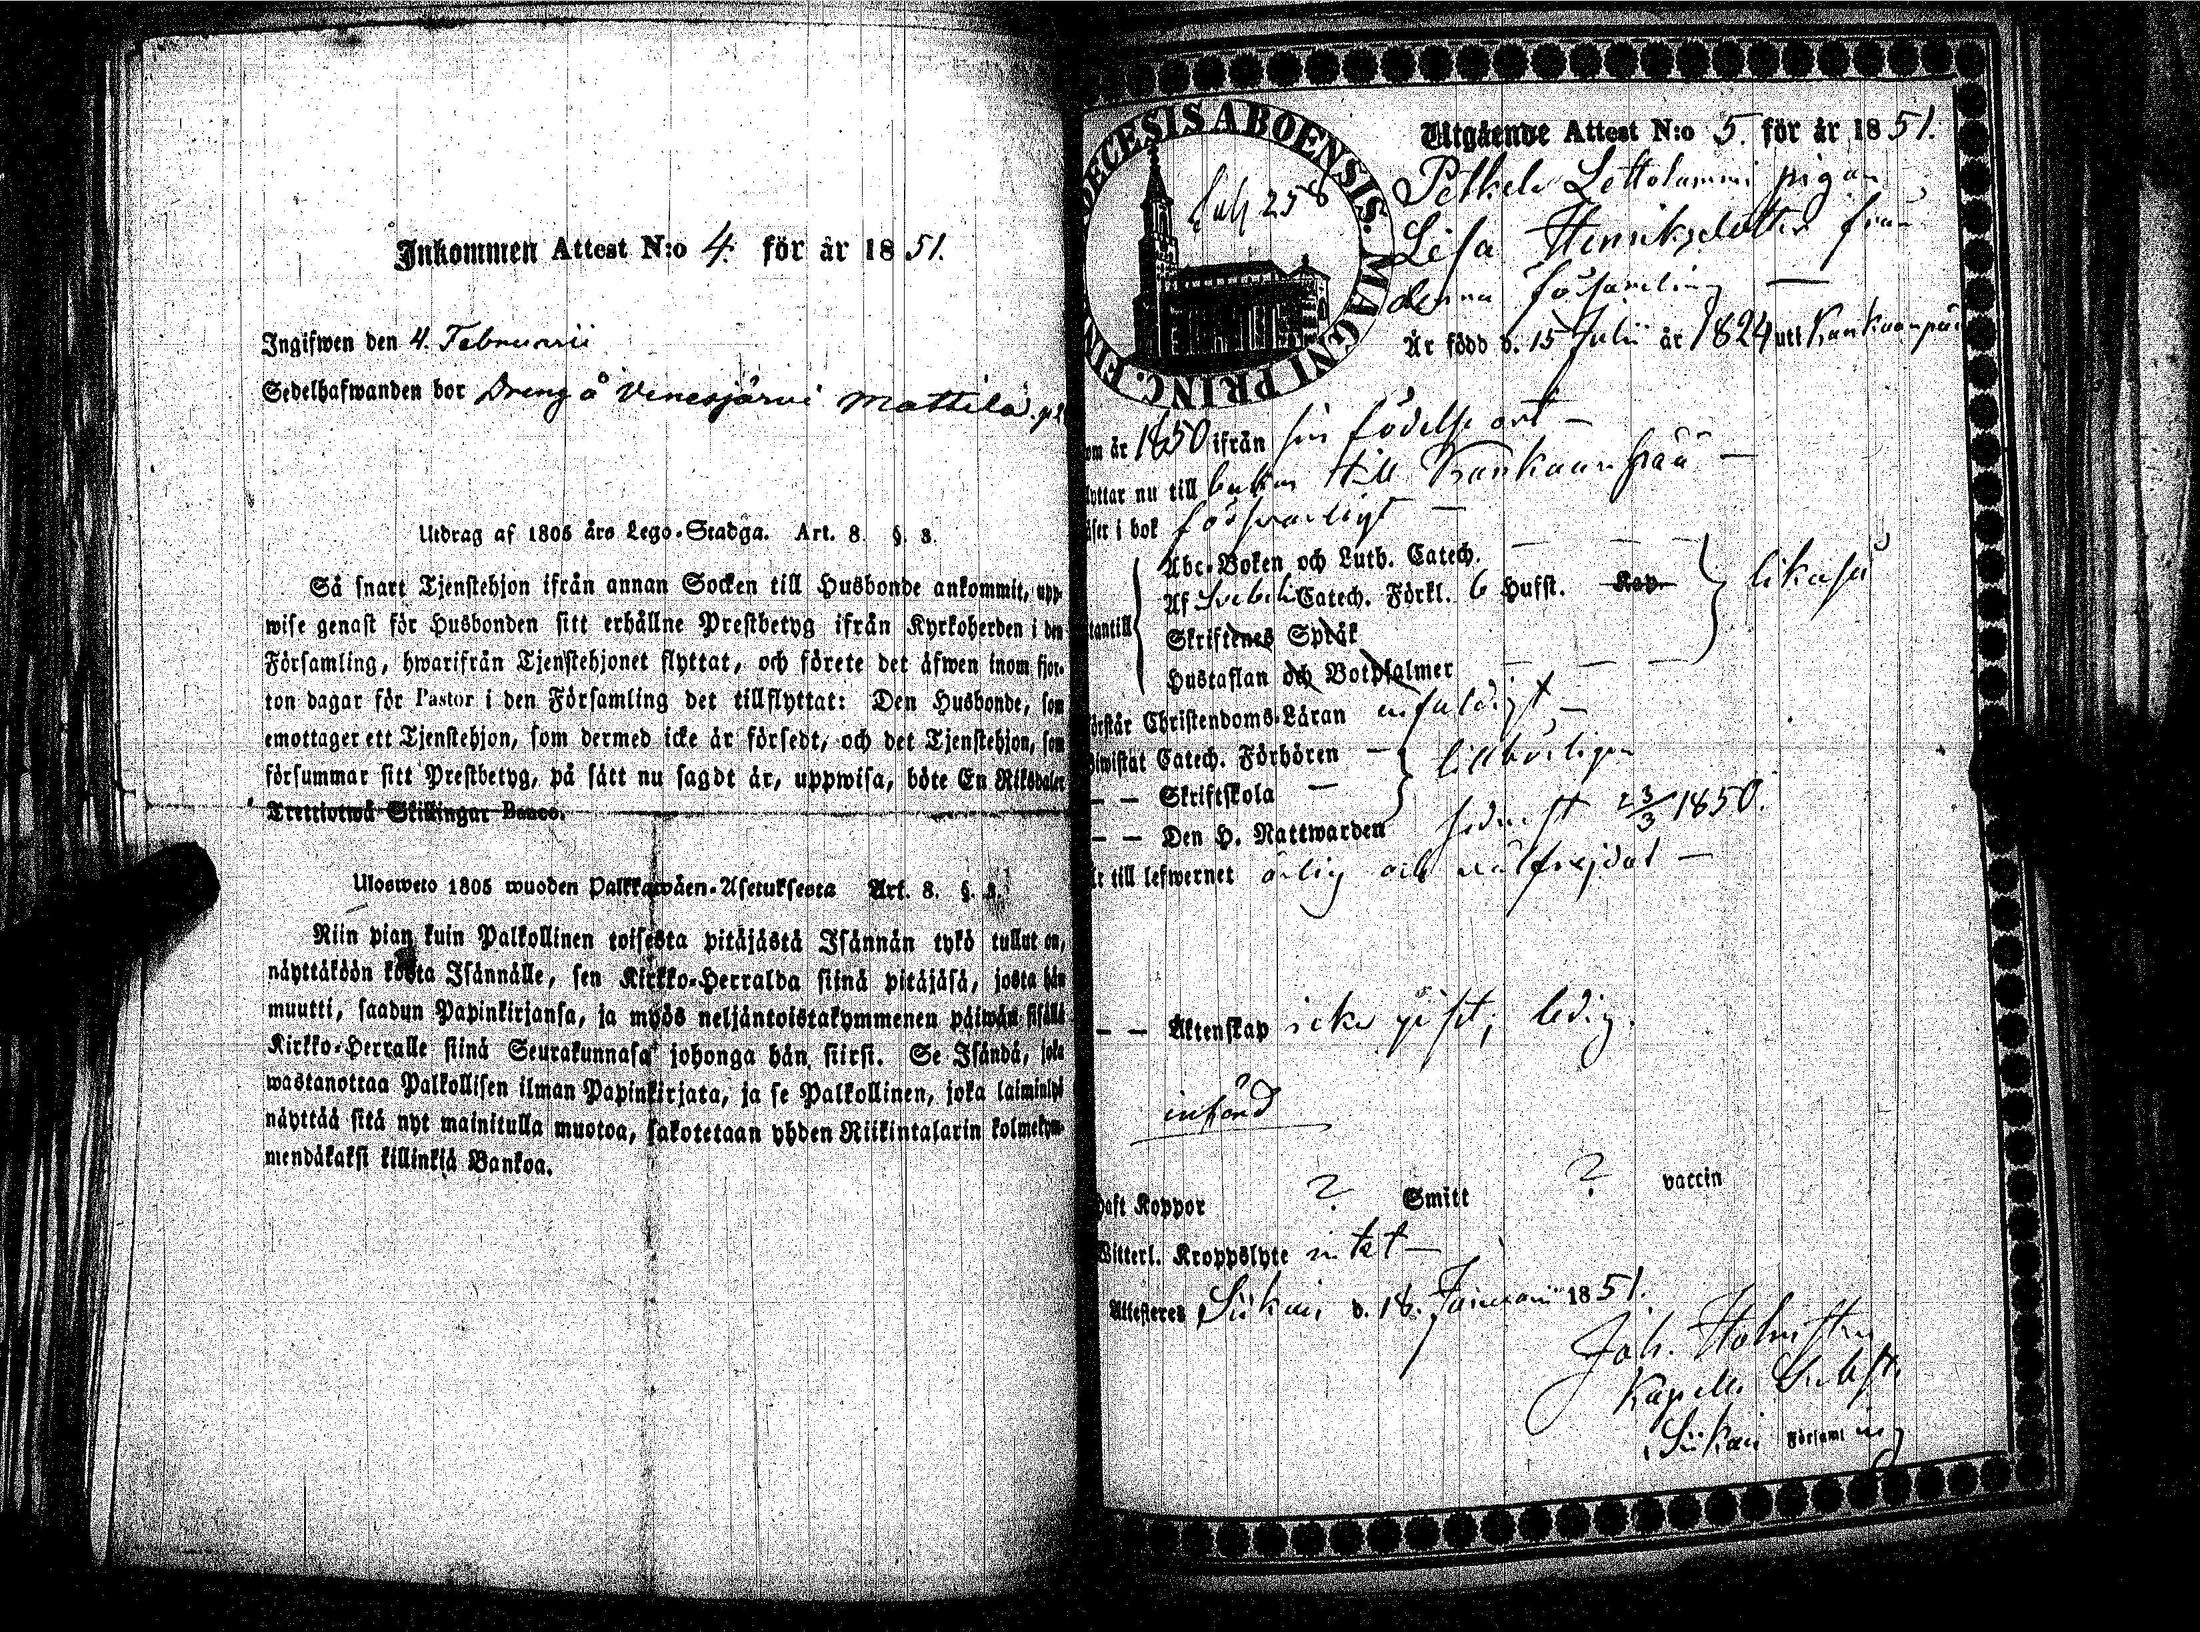 Inkommen Attest N:o 4. för år 1851.
Ingifwen den 4. Februarii
Sedelhafwanden bor Dreng å Venesjärvi Mattila
Utdrag af 1805 års Lego-Stadga. Art. 8. §. 3.
Så snart Tjenstehjon ifrån annan Socken till Husbonde ankommit, upp-
wise genast för Husbonden sitt erhållne Prestbetyg ifrån Kyrkoherden i den
Församling, hwarifrån Tjenstehjonet flyttat, och förete det äfwen inom fjor-
ton dagar för Pastor i den Församling det tillflyttat: Den Husbonde, som
emottager ett Tjenstehjon, som dermed icke är försedt, och det Tjenstehjon, som
försummar sitt Prestbetyg, på sätt nu sagdt är, uppwisa, böte En Riksdaler
Trettiotwå Skillingar Banco.
Ulosweto 1805 wuoden Palkkawäen-Asetuksesta Art. 8. §. 3.
Niin pian kuin Palkollinen toisesta pitäjästä Isännän tykö tullut on,
näyttäköön kosta Isännälle, sen Kirkko-Herralda siinä pitäjäsä, josta hän
muutti, saadun Papinkirjansa, ja myös neljäntoistakymmenen päiwän sisällä
Kirkko-Herralle siinä Seurakunnasa johonga hän siirsi. Se Isändä, joka
wastanottaa Palkollisen ilman Papinkirjata, ja se Palkollinen, joka laiminlyö
näyttää sitä nyt mainitulla muotoa, sakotetaan yhden Riikintalarin kolmekym-
mendäkaksi killinkiä Bankoa.
DIOECESIS ABOENSIS. MAGNI PRINC. FIN
258
Utgående Attest N:o 5. för år 1851.
Petkele Lettolammi pigan
Lisa Henriksdotter från
denna församling —
Är född d. 15 Julii år 1824 uti Kankaanpää
om år 1850 ifrån sin födelse ort —
lyttar nu till bakas till Kankaanpää —
äser i bok försvarligt —
Abc-Boken och Luth. Catech. — — —
Af Svebeli Catech. Förkl. 6 Hufst. Kap. likaså
tantill
Skriftenes Språk
Hustaflan och Botpsalmer — — —
örstår Christendoms-Läran enfaldigt —
iwistat Catech. Förhören — tillbörligen
— — Skriftskola —
— — Den H. Nattwarden sednast 23/3 1850.
r till lefwernet ärlig och välfrejdad —
— — Äktenskap icke gift; ledig.
införd
haft Koppor ? Smitt ? vaccin
Witterl. Kroppslyte intet —
Attesteras Siikais d. 18. Januari 1851.
Joh. Holmsten
Kapell
Siikais Församling